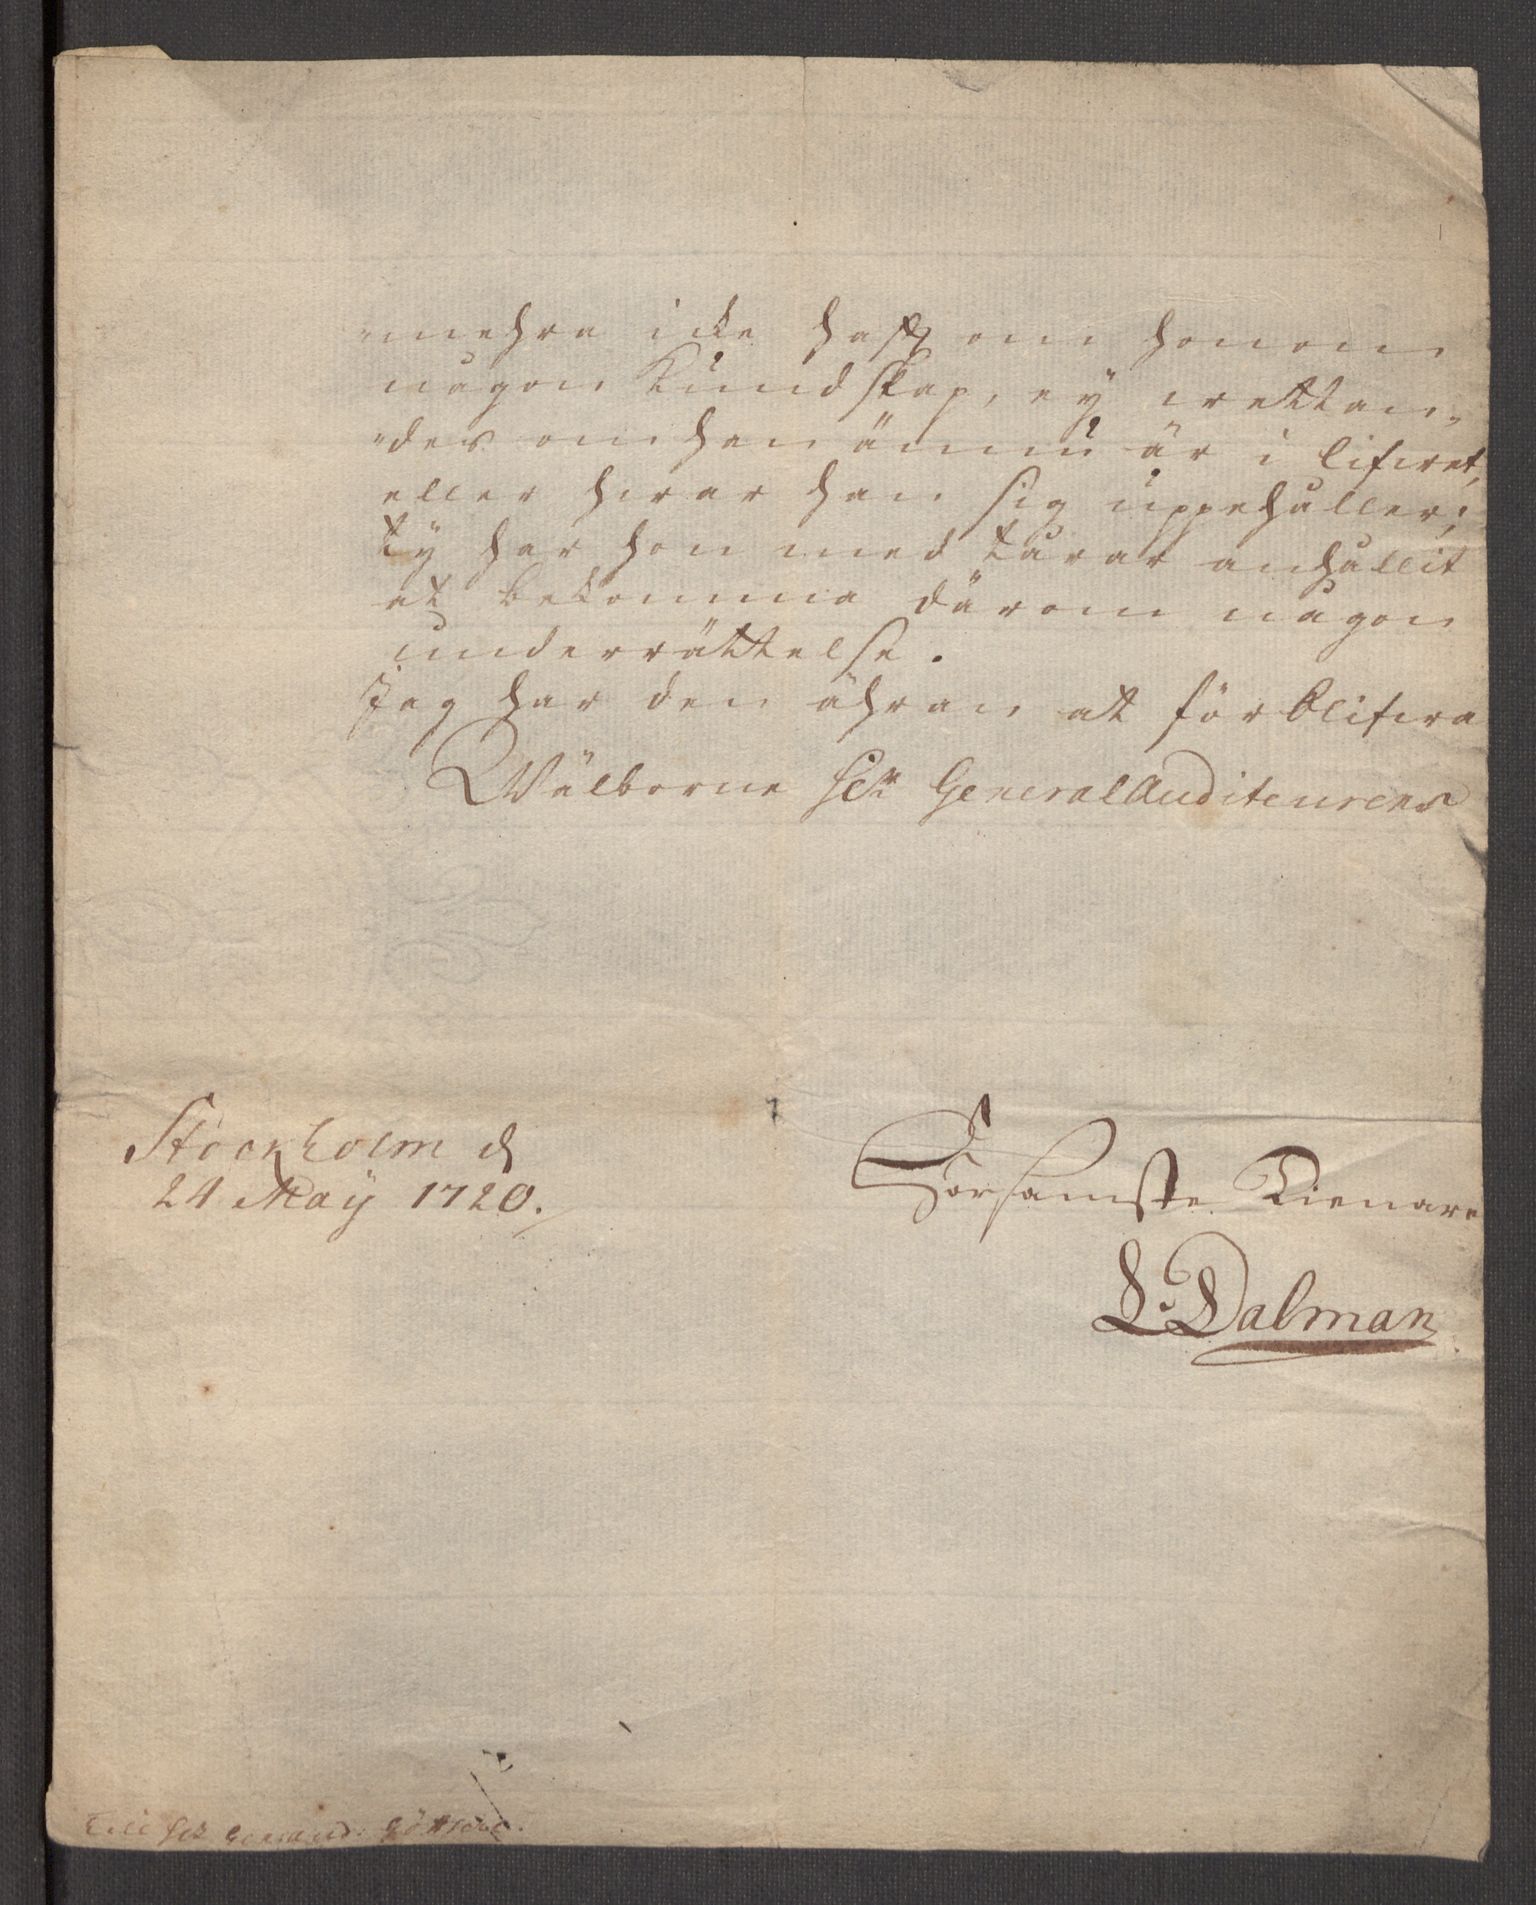 "mehra icke haft om honom
någon Kundskap, ey wettan„
"des om han ännu är i lifwet,
eller hwar han sig uppehåller;
ty har hon med tårar anhållit
at bekomma därom någon
underrättelse.
Jag har den ähran at förblifwa
Wälborne hr General Auditeurens
Stockholm d
24 Maÿ 1720.
Hörsamste Tienare
L. Dalman
Till hr